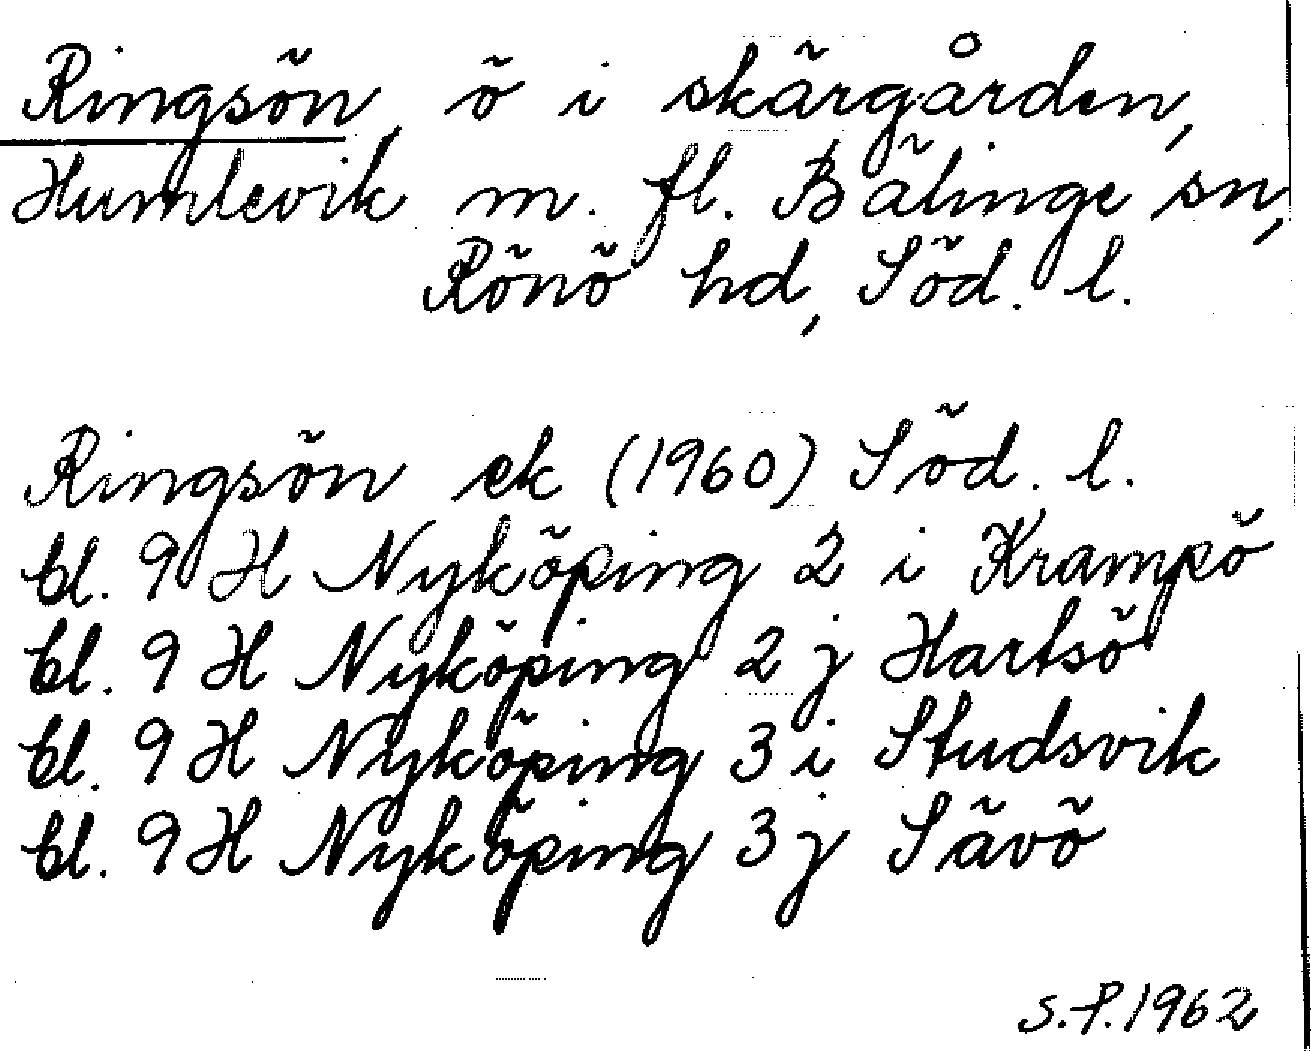 Ringsön, ö i skärgården,
Humlevik m. fl. Bälinge sn,
Rönö hd, Söd. l.
Ringsön ek (1960) Söd. l.
bl. 9 H Nyköping 2 i Krampö
bl. 9 H Nyköping 2 j Hartsö
bl. 9 H Nyköping 3 i Studsvik
bl. 9 H Nyköping 3 j Sävö
S.P. 1962